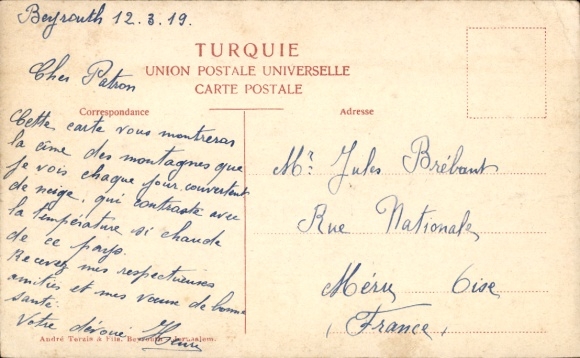 Beyrouth 12.3.19.
TURQUIE
UNION POSTALE UNIVERSELLE
CARTE POSTALE
Correspondance
Adresse
Cher Patron
Cette carte vous montreras
la cîme des montagnes que
je vois chaque jour couvertent
de neige, qui contraste avec
la température si chaude
de ce pays.
Recevez mes respectueuses
amitiés et mes vœux de bonne
santé.
Votre dévoué Henri
Mr. Jules Brébant
Rue Nationale
Méru Oise
(France)
André Terzis & Fils, Beyrouth - Jérusalem.